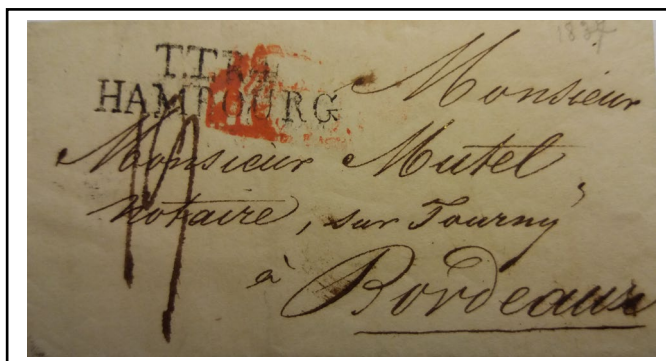 T.T.R.4
HAMBOURG
Monsieur
Monsieur Mutel
notaire, sur Tourny
à Bordeaux